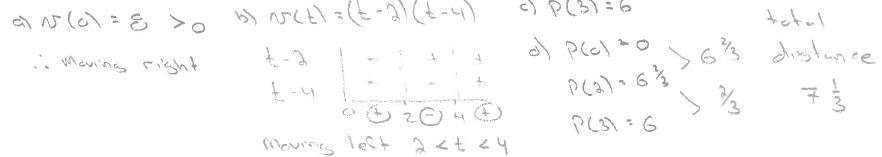 a) v(0) = 8 > 0
∴ moving right
b) v(t) = (t-2)(t-4)
t-2 - + +
t-4 - - +
0 + 2 - 4 +
moving left 2 < t < 4
c) P(3) = 6
d) P(0) = 0
P(2) = 6 2/3
P(3) = 6
> 6 2/3
> 2/3
total
distance
7 1/3